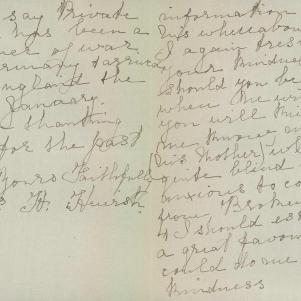 say Private
has been a
of war
Germany & arrived
England the
January.
thanking
for the past
Yours Faithfully
H. Hurst
information
his whereabou
I again tres
your kindness
should you be
when
you will
me know
(his Mother) wh
quite blind
anxious to co
from Broken
& I should es
a great favou
could do me
kindness